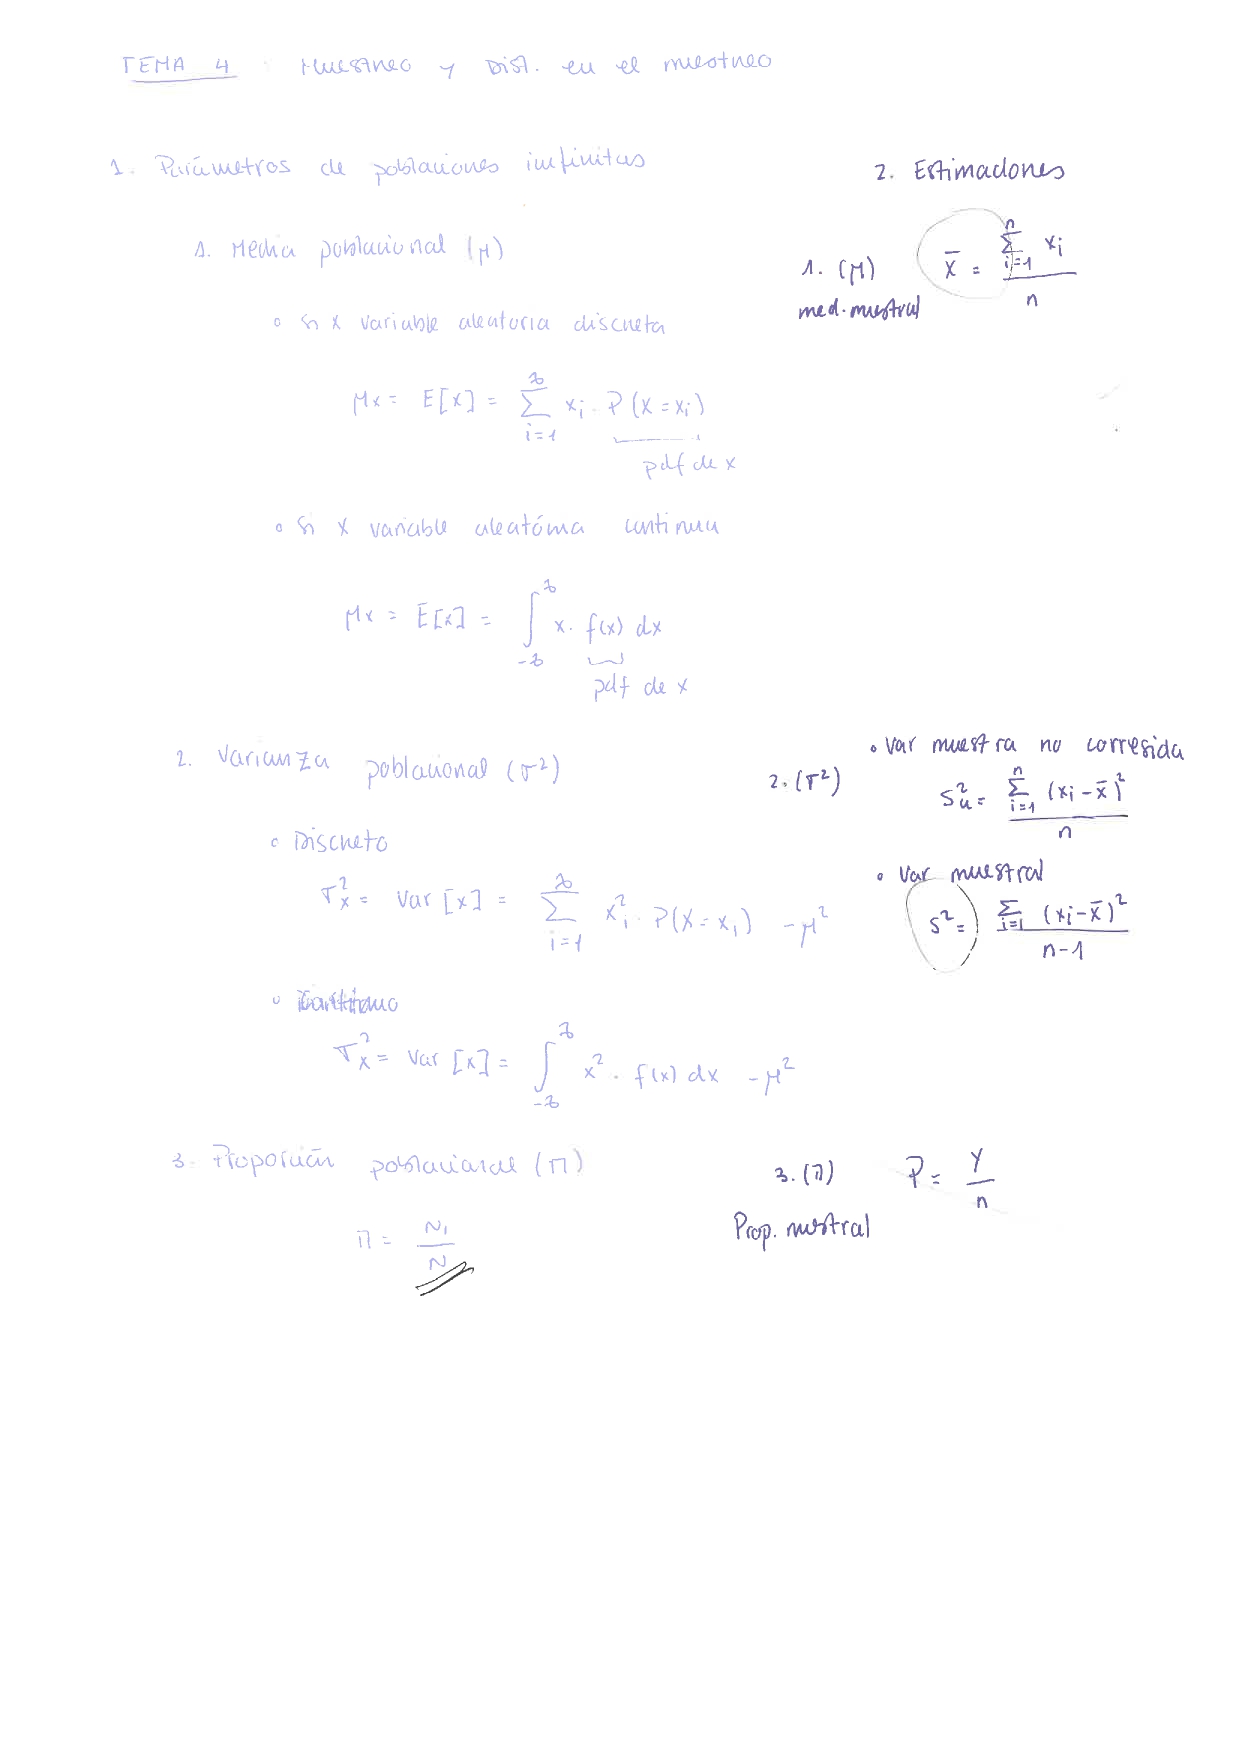 TEMA 4 : Muestreo y Dist. en el muestreo
1. Parámetros de poblaciones infinitas
1. Media poblacional (μ)
o Si x variable aleatoria discreta
μx = E[x] = ∑_{i=1}^{∞} xi · P(X = xi)
pdf de x
o Si x variable aleatória continua
μx = E[x] = ∫_{-∞}^{∞} x · f(x) dx
pdf de x
2. Varianza poblacional (σ²)
o Discreto
σx² = Var [x] = ∑_{i=1}^{∞} xi² · P(X = xi) - μ²
o Continuo
σx² = Var [x] = ∫_{-∞}^{∞} x² · f(x) dx - μ²
3. Proporción poblacional (Π)
Π = N1 / N
2. Estimadores
1. (μ) x̄ = ∑_{i=1}^{n} xi / n
med. mustral
2. (σ²)
• Var muestra no corregida
Su² = ∑_{i=1}^{n} (xi - x̄)² / n
• Var muestral
S² = ∑_{i=1} (xi - x̄)² / n-1
3. (Π) P = Y / n
Prop. mustral